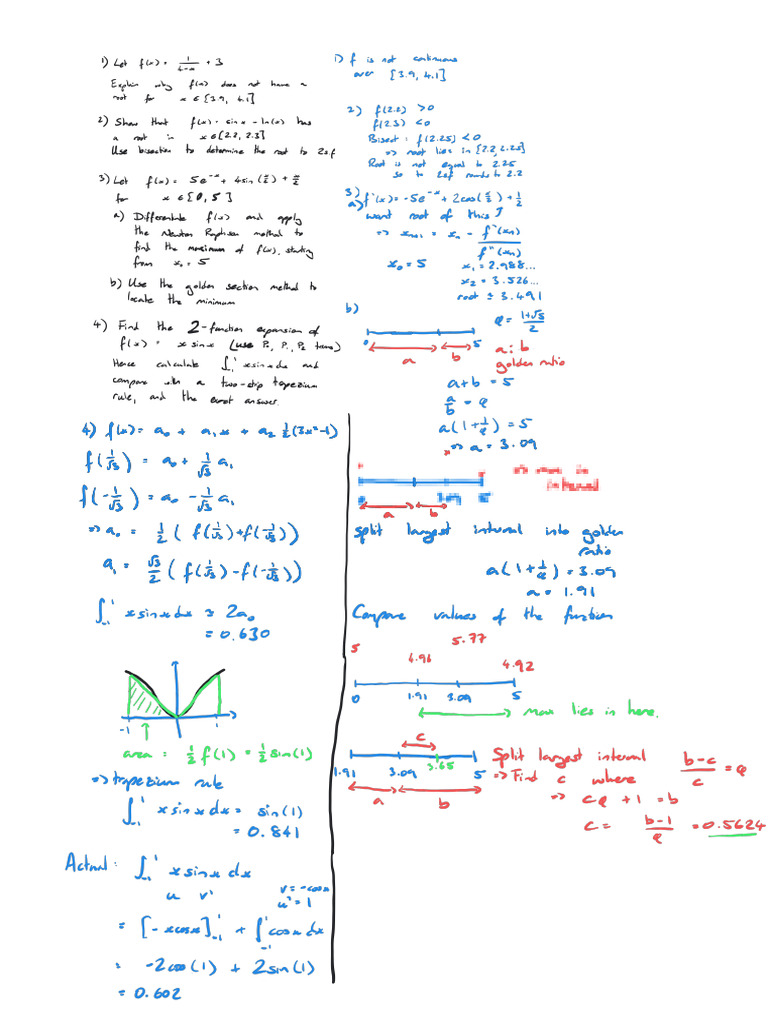 1) Let f(x) = 1/(4-x) + 3
Explain why f(x) does not have a
root for x ∈ [3.9, 4.1]
2) Show that f(x) = sin x - ln(x) has
a root in x ∈ [2.2, 2.3]
Use bisection to determine the root to 2s.f
3) Let f(x) = 5e^-x + 4sin(x/2) + x/2
for x ∈ [0, 5]
a) Differentiate f(x) and apply
the Newton Raphson method to
find the maximum of f(x), starting
from x₀ = 5
b) Use the golden section method to
locate the minimum
4) Find the 2-function expansion of
f(x) = x sin x (use P₀, P₁, P₂ terms)
Hence calculate ∫₋₁¹ x sin x dx and
compare with a two-strip trapezium
rule, and the exact answer.
1) f is not continuous
over [3.9, 4.1]
2) f(2.2) > 0
f(2.3) < 0
Bisect: f(2.25) < 0
⇒ root lies in [2.2, 2.25]
Root is not equal to 2.25
so to 2sf rounds to 2.2
3)
a) f'(x) = -5e^-x + 2cos(x/2) + 1/2
want root of this ↑
⇒ xₙ₊₁ = xₙ - f'(xₙ)/f''(xₙ)
x₀ = 5 x₁ = 2.988...
x₂ = 3.526...
root = 3.491
b)
φ = (1+√5)/2
0 5
a b
a : b
golden ratio
a + b = 5
a/b = φ
a(1 + 1/φ) = 5
⇒ a = 3.09
a b
split largest interval into golden
ratio
a(1 + 1/φ) = 3.09
a = 1.91
Compare values of the function
5 4.96 5.77 4.92
0 1.91 3.09 5
max lies in here.
c
1.91 3.09 3.65 5
a b
Split largest interval
⇒ Find c where (b-c)/c = φ
⇒ cφ + 1 = b
c = (b-1)/φ = 0.5624
4) f(x) = a₀ + a₁x + a₂ 1/2(3x²-1)
f(1/√3) = a₀ + 1/√3 a₁
f(-1/√3) = a₀ - 1/√3 a₁
⇒ a₀ = 1/2 (f(1/√3) + f(-1/√3))
a₁ = √3/2 (f(1/√3) - f(-1/√3))
∫₋₁¹ x sin x dx ≈ 2a₀
= 0.630
-1 1
area = 1/2 f(1) = 1/2 sin(1)
⇒ trapezium rule
∫₋₁¹ x sin x dx = sin(1)
= 0.841
Actual: ∫₋₁¹ x sin x dx
u v' v = -cos x
u' = 1
= [-x cos x]₋₁¹ + ∫₋₁¹ cos x dx
= -2cos(1) + 2sin(1)
= 0.602